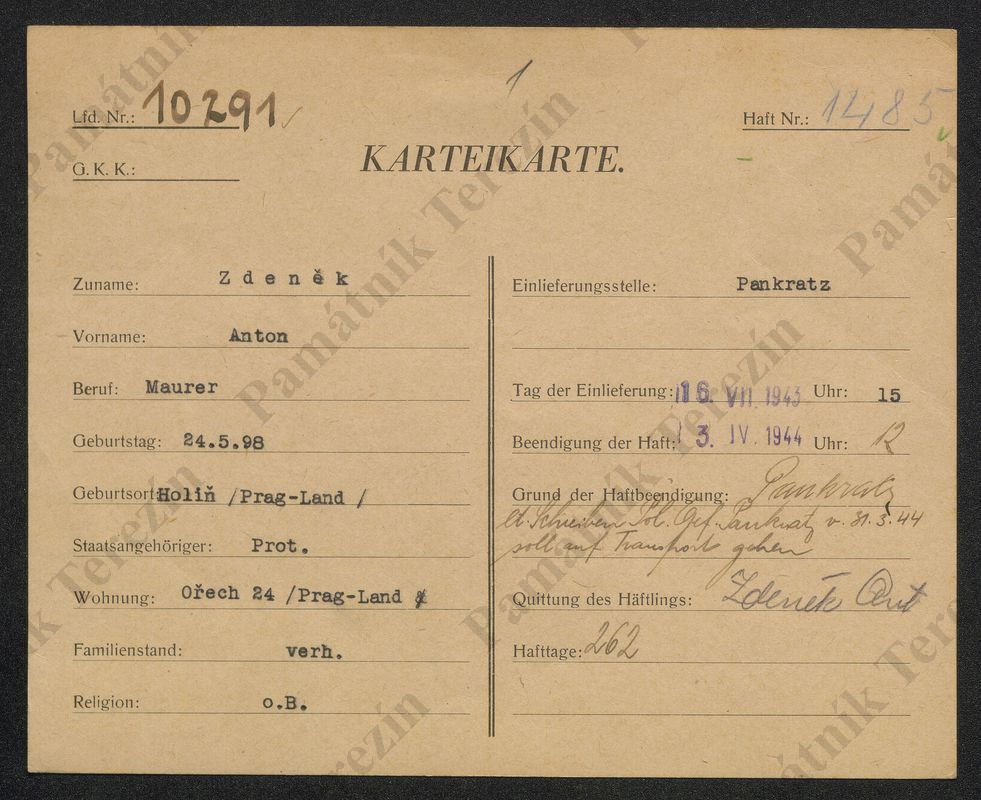 1
Lfd. Nr.: 10291
Haft Nr.: 1485
G. K. K.:
KARTEIKARTE.
Zuname: Zdeněk
Vorname: Anton
Beruf: Maurer
Geburtstag: 24.5.98
Geburtsort: Holiň /Prag-Land /
Staatsangehöriger: Prot.
Wohnung: Ořech 24 /Prag-Land /
Familienstand: verh.
Religion: o.B.
Einlieferungsstelle: Pankratz
Tag der Einlieferung: 16. VII. 1943 Uhr: 15
Beendigung der Haft: 3. IV. 1944 Uhr: 12
Grund der Haftbeendigung: Pankratz
lt. Schreiben Pol. Gef. Pankratz v. 31.3.44
soll auf Transport gehen
Quittung des Häftlings: Zdeněk Ant
Hafttage: 262
Památník Terezín